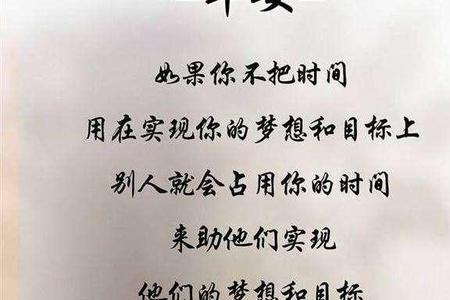 如果你不把时间
用在实现你的梦想和目标上
别人就会占用你的时间
来助他们实现
他们的梦想和目标